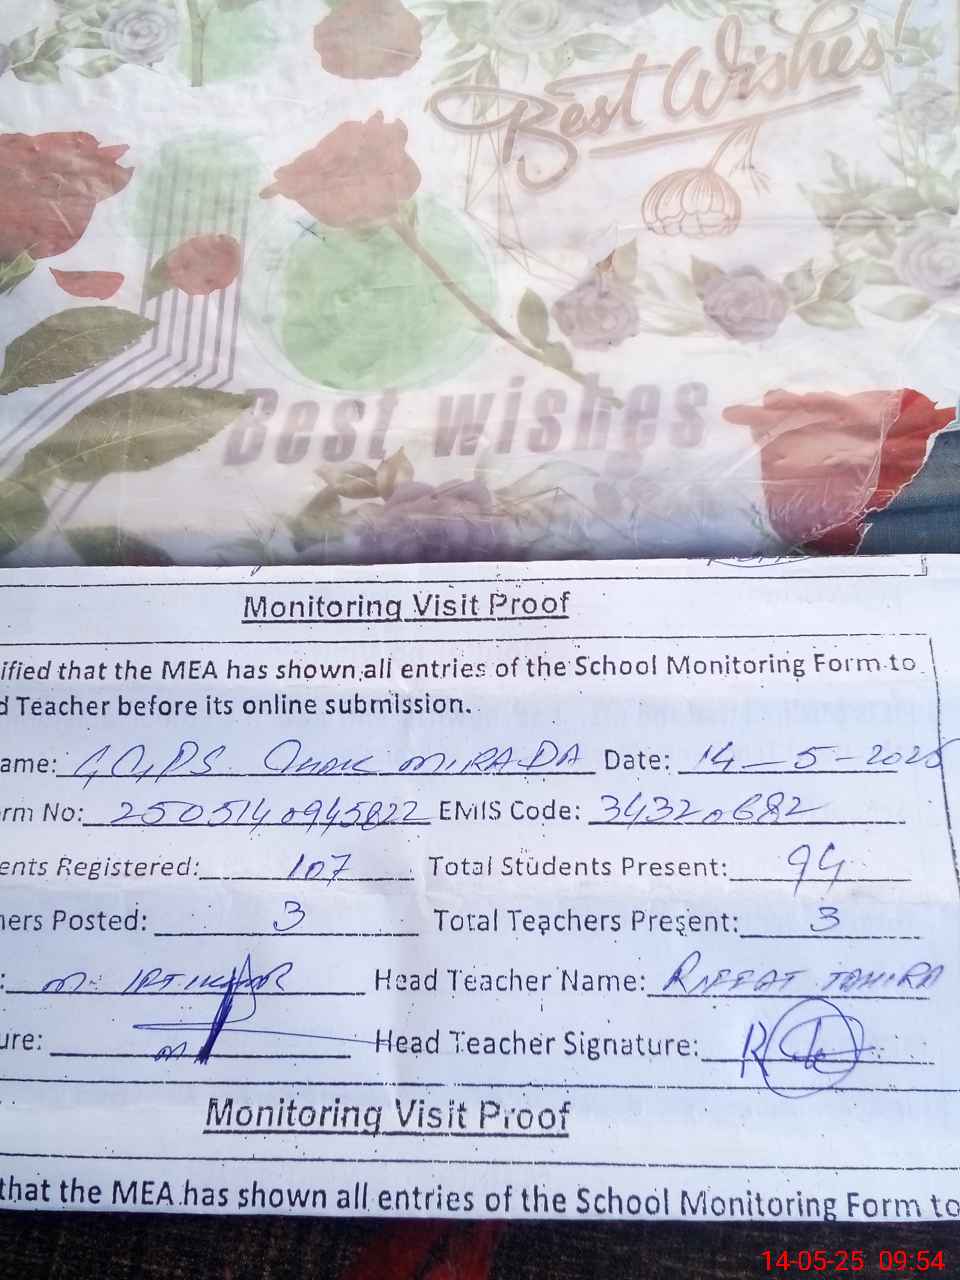 Best Wishes!
Best wishes
Monitoring Visit Proof
ified that the MEA has shown all entries of the School Monitoring Form to
d Teacher before its online submission.
ame: GGPS. Chak MIRADA Date: 14-5-2025
rm No: 2505140945822 EMIS Code: 34320682
ents Registered: 107 Total Students Present: 94
hers Posted: 3 Total Teachers Present: 3
: M. IFTIKHAR Head Teacher Name: RIFFAT TAHIRA
ure: Head Teacher Signature:
Monitoring Visit Proof
that the MEA has shown all entries of the School Monitoring Form to
14-05-25 09:54